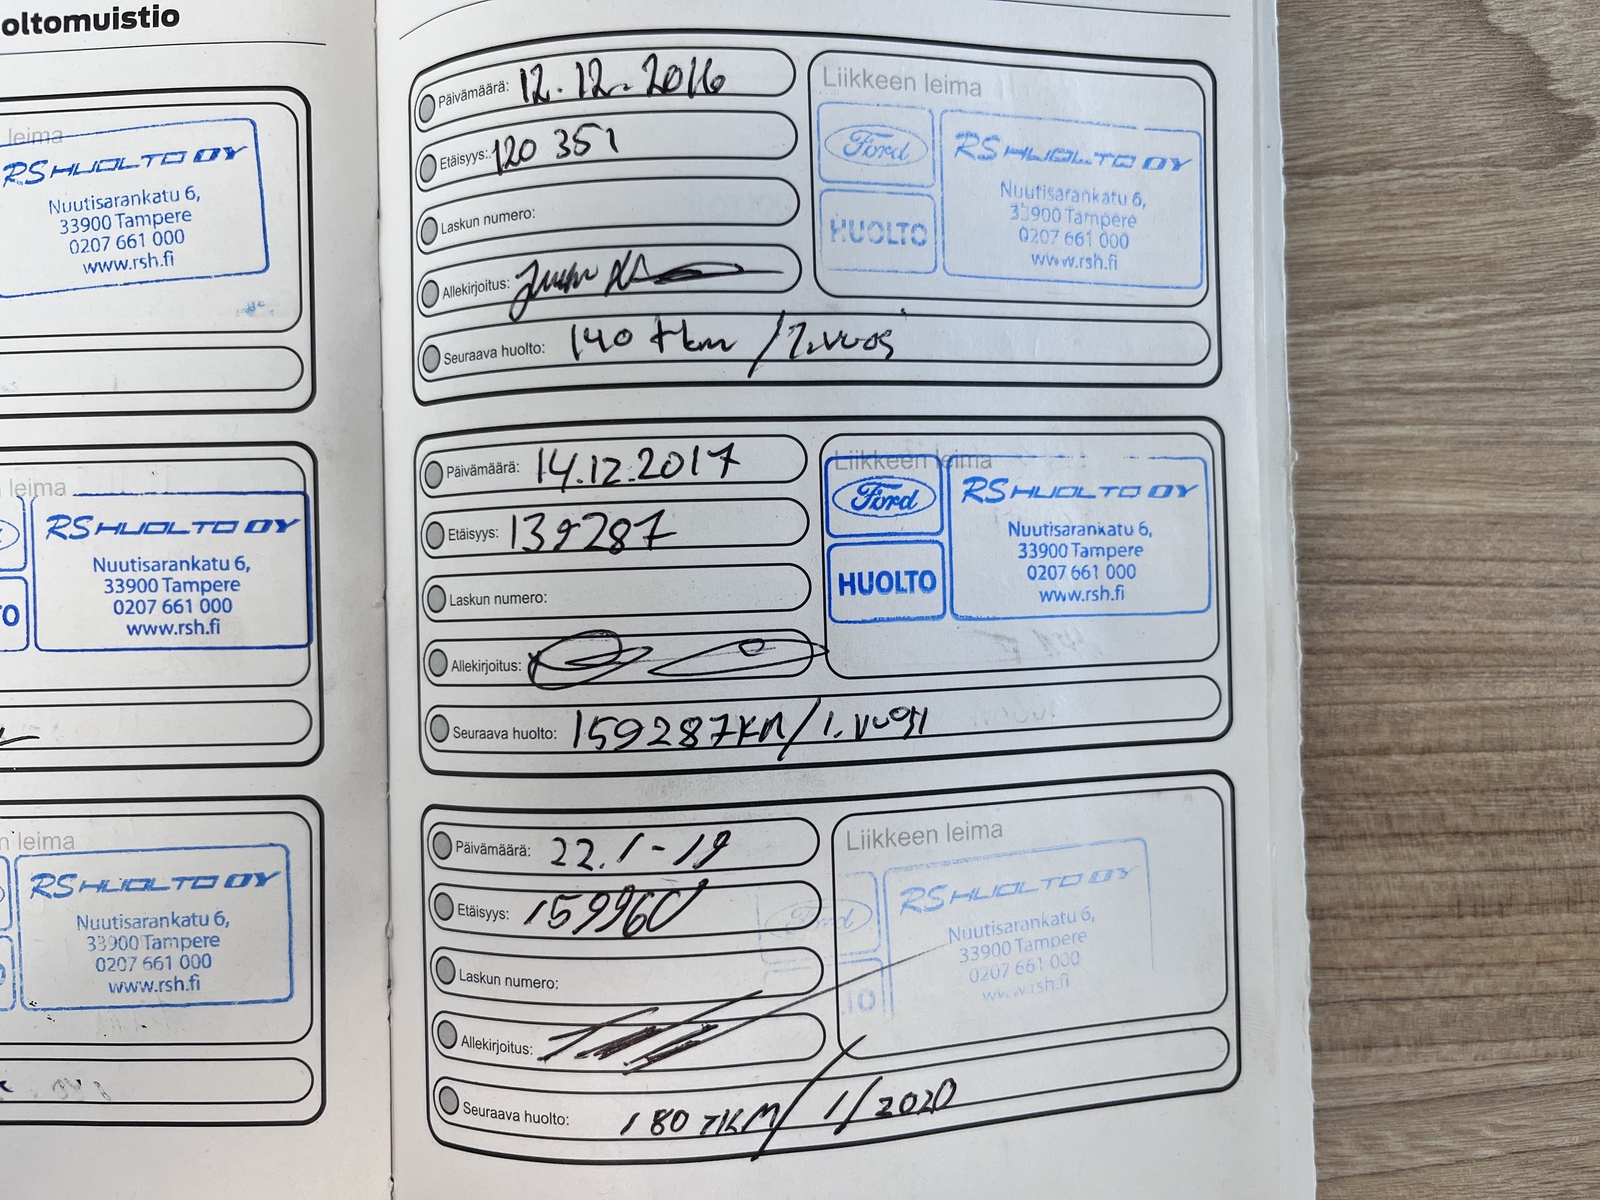 oltomuistio
leima
RS HUOLTO OY
Nuutisarankatu 6,
33900 Tampere
0207 661 000
www.rsh.fi
leima
RS HUOLTO OY
Nuutisarankatu 6,
33900 Tampere
0207 661 000
www.rsh.fi
TO
n leima
RS HUOLTO OY
Nuutisarankatu 6,
33900 Tampere
0207 661 000
www.rsh.fi
Päivämäärä: 12.12.2016
Etäisyys: 120 351
Laskun numero:
Allekirjoitus:
Seuraava huolto: 140 tkm / 1.vuosi
Liikkeen leima
Ford
HUOLTO
RS HUOLTO OY
Nuutisarankatu 6,
33900 Tampere
0207 661 000
www.rsh.fi
Päivämäärä: 14.12.2017
Etäisyys: 139287
Laskun numero:
Allekirjoitus:
Seuraava huolto: 159287KM / 1. vuosi
Liikkeen leima
Ford
HUOLTO
RS HUOLTO OY
Nuutisarankatu 6,
33900 Tampere
0207 661 000
www.rsh.fi
Päivämäärä: 22.1-19
Etäisyys: 159960
Laskun numero:
Allekirjoitus:
Seuraava huolto: 180 TKM / 1/2020
Liikkeen leima
Ford
TO
RS HUOLTO OY
Nuutisarankatu 6,
33900 Tampere
0207 661 000
www.rsh.fi